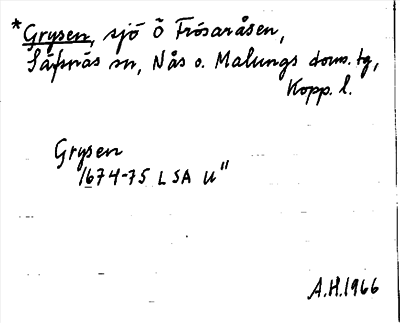 *Grysen, sjö Ö Frösaråsen,
Säfsnäs sn, Nås o. Malungs doms. tg,
Kopp. l.
Grysen
1674-75 LSA U"
A.H.1966